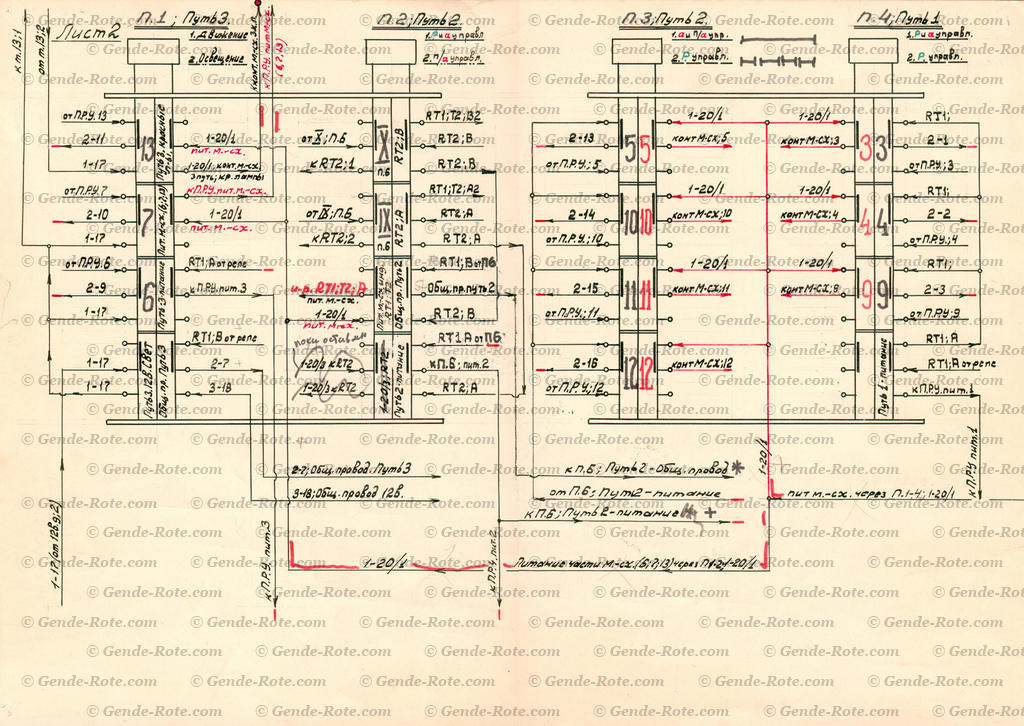 Лист 2
к т.13;1
от т.13;2
П.1; Путь 3.
1. Движение
2. Освещение
П.2; Путь 2.
2. п/а управл.
П.3; Путь 2.
2. Р управл.
П.4; Путь 1
2. Р управл.
от П.Р.У. 13
2-11
1-17
от П.Р.У. 7
2-10
1-17
от П.Р.У. 6
2-9
1-17
1-17
1-17
13
7
6
Путь 3-питание
Общ. пр. Путь 3
1-20/1
пит. м.-сх.
1-20/1; конт. м-сх
к П.Р.У. пит. м.-сх.
1-20/1
пит. м.-сх.
RT1; А от репе
к П.Р.У. пит. 3
RT1; В от репе
2-7
3-18
от X; П.Б
к RT2; 1
от IX; П.Б
к RT2; 2
и-р. RT1; T2; А
пит. м.-сх.
1-20/1
пит. м-сх.
поки оставям
1-20/3 к RT2
1-20/3 к RT2
X
п.б
RT2; В
IX
п.б
RT2; А
Общ. пр. Путь 2
1-20/3; RT2
Путь 2-питание
RT1; T2; В2
RT2; В
RT2; В
RT1; T2; А2
RT2; А
RT2; А
RT1; В от ПБ
Общ. пр. путь 2
RT2; В
RT1 А от ПБ
к П.Б; пит. 2
RT2; А
2-13
от П.Р.У.; 5
2-14
от П.Р.У.; 10
2-15
от П.Р.У.; 11
2-16
от П.Р.У.; 12
5 5
10 10
11 11
12 12
1-20/1
конт М-СХ; 5
1-20/1
конт М-СХ; 10
1-20/1
конт М-СХ; 11
1-20/1
конт М-СХ; 12
1-20/1
конт М-СХ; 3
1-20/1
конт М-СХ; 4
1-20/1
конт М-СХ; 9
3 3
4 4
9 9
Путь 1-питание
RT1;
2-1
от П.Р.У.; 3
RT1;
2-2
от П.Р.У.; 4
RT1;
2-3
от П.Р.У; 9
RT1; А
RT1; А от репе
к П.Р.У. пит. 1
1-17 (от 12в д; 2)
2-7; Общ. провод. Путь 3
3-18; Общ. провод 12в.
к П.Р.У. пит. 3
к П.Р.У. пит. 2
к П.Б; Путь 2 - Общ. провод *
от П.Б; Путь 2 - питание
к П.Б; Путь 2 - питание +
1-20/1
к П.Р.У пит. 1
пит м.-сх. через П.1-4; 1-20/1
1-20/1
Питание части м.-сх. (6; 7; 13) через П1-2; 1-20/1
© Gende-Rote.com